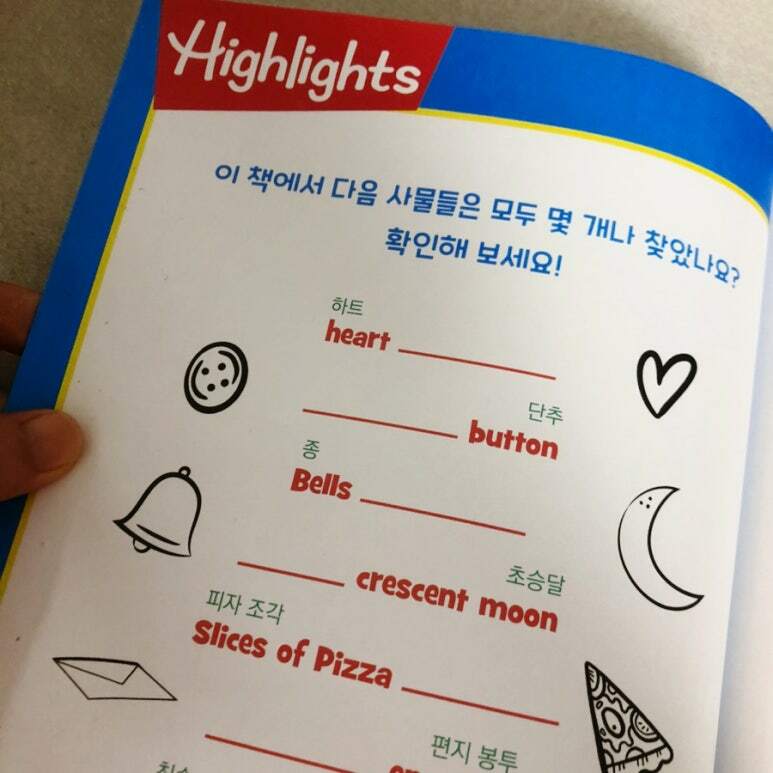 Highlights
이 책에서 다음 사물들은 모두 몇 개나 찾았나요?
확인해 보세요!
하트
heart
단추
button
종
Bells
초승달
crescent moon
피자 조각
Slices of Pizza
편지 봉투